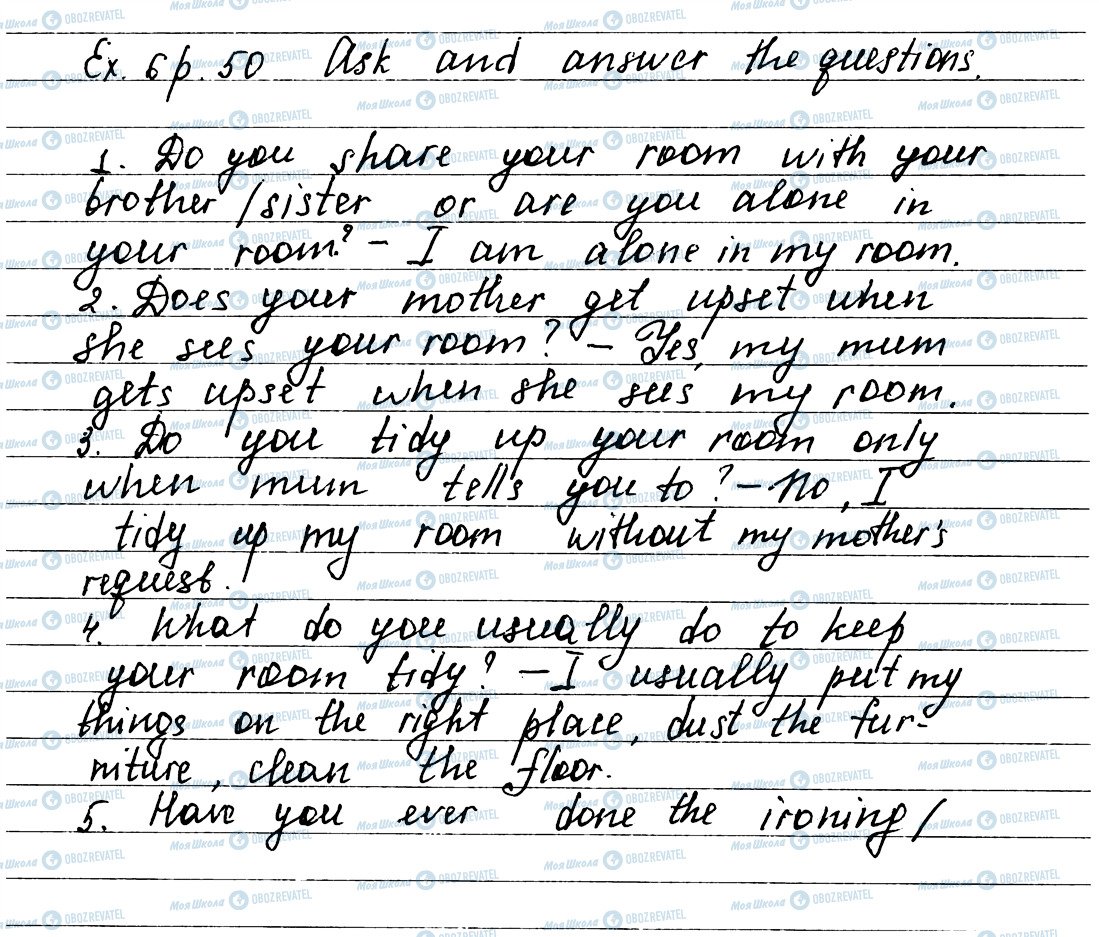 Ex. 6 p. 50 Ask and answer the questions.
1. Do you share your room with your
brother / sister or are you alone in
your room? – I am alone in my room.
2. Does your mother get upset when
she sees your room? – Yes, my mum
gets upset when she sees my room.
3. Do you tidy up your room only
when mum tells you to? – No, I
tidy up my room without my mother's
request.
4. What do you usually do to keep
your room tidy? – I usually put my
things on the right place, dust the fur-
niture, clean the floor.
5. Have you ever done the ironing /